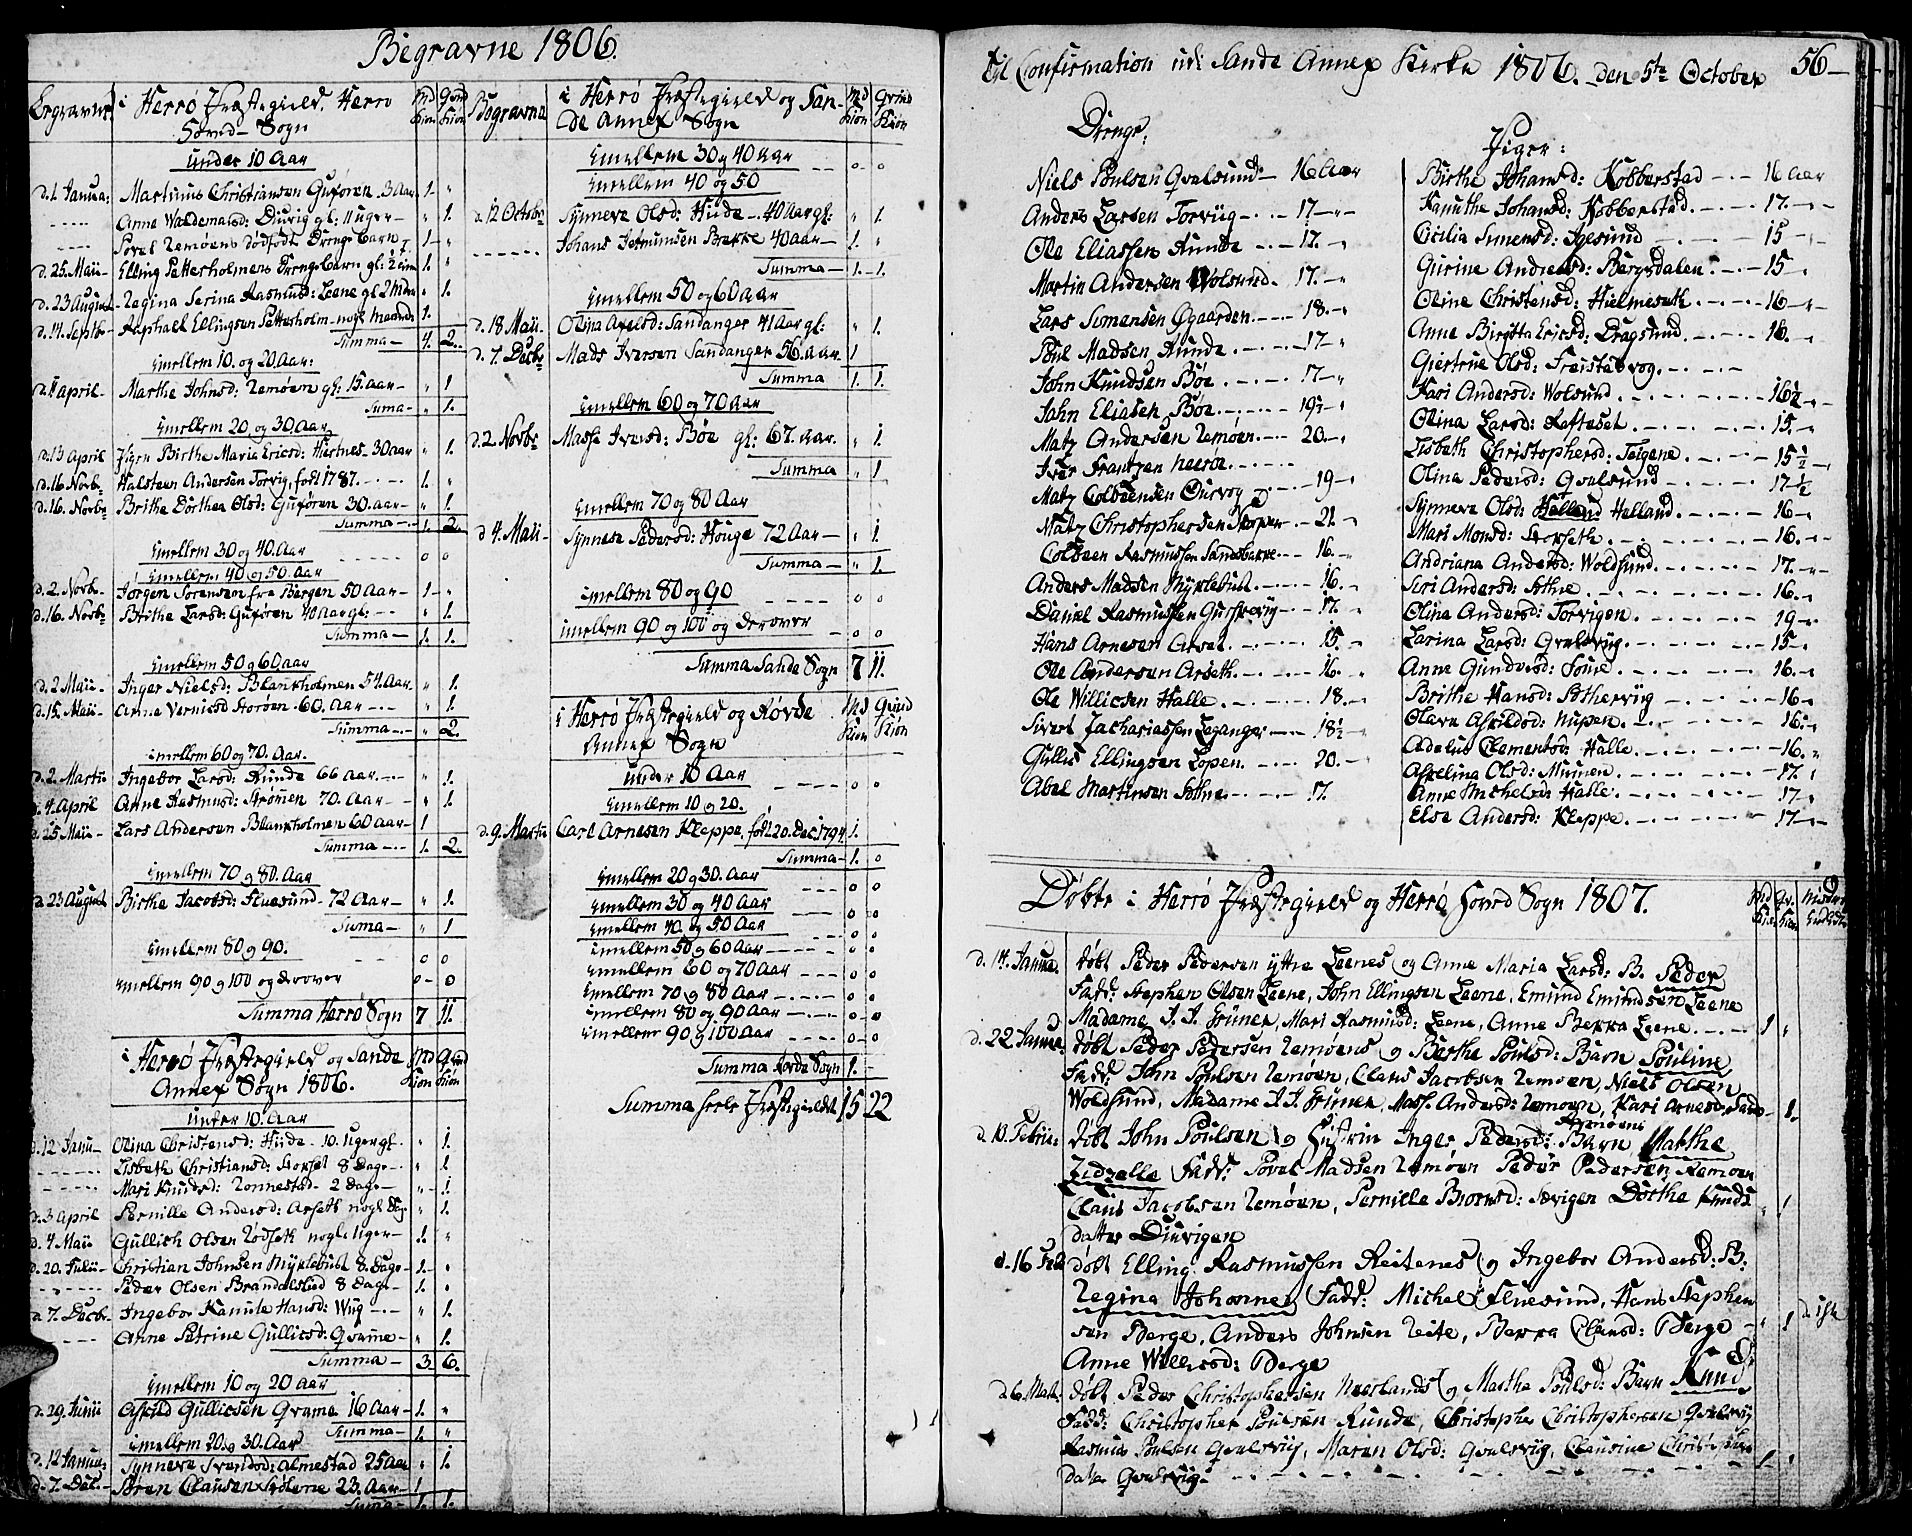 Begravne 1806.
Begravne i Herrö Præstegield, Herrö Hoved-Sogn
under 10 Aar
d. 1 Janua: Martinus Christiansen Gufören 3 Aar 1. "
Anne Waldemarsd: Diuvig gl: 11 uger " 1.
Povel Remöens dödfödt Drenge barn 1 "
d. 25. Maii Elling Petterholmens Drengebarn gl: 1. "
d. 23 August Regina Serina Rasmusd: Leene gl 2 Mdr " 1.
d. 14. Septbr Raphael Ellingsen Petterholm nogle Maaned: 1.
Summa 4. 2.
imellem 10. og 20 Aar:
d. 1 april Marthe Johnsd: Remöen gl: 15. aar " 1
Suma " 1.
imellem 20. og 30 Aar
d. 13 April Pigen Birthe Maria Ericsd: Hestnes 30 aar " 1.
d. 16 Novbr Halsteen Andersen Torvig, född 1787. 1. "
d. 16. Novbr Birthe Dorthea Olsd: Gufören 30. aar " 1.
Summa 1. 2.
imellem 30 og 40. Aar 0 0
imellem 40 og 50. Aar
d. 2. Novbr Jörgen Sörensen fra Bergen 50 Aar 1 "
d. 16. Novbr Birthe Larsd: Gufören 40 Aar gl: " 1.
Summa 1. 1.
imellem 50 og 60 Aar
d. 2 Maii Inger Nielsd: Blankholmen 54 Aar " 1.
d. 15. Maii Anne Vernicsd Storöen 60 Aar " 1.
Summa " 2.
imellem 60 og 70. Aar.
d. 2. Martii Ingebor Larsd: Runde 66 aar " 1.
d. 4. April Anne Rasmusd: Strömen 70. Aar " 1.
d. 25 Maii Lars Andersen Blankholmen 60 aar 1
Summa 1. 2.
imellem 70 og 80. Aar
d. 23 August Birthe Jacobsd: Fluesund 72 Aar " 1.
Suma " 1
imellem 80 og 90. 0 0
imellem 90 og 100 og derover 0 0
Summa Herrö Sogn 7 11.
i Herrö Præstegield og Sande Annex Sogn 1806.
under 10. Aar
d. 12 Janu Olina Christensd: Hiide 10. uger gl " 1.
Lisbeth Christiansd: Storset 8 Dage " 1
Mari Knudsd: Ronnestad 2 Dage " 1.
d. 3 April Pernille Andersd: Arseth nogl. Dag " 1.
d. 4 Maii Gullich Olsen Rödseth nogle uger 1. "
d. 20. Julii Christian Johnsen Myklebust 8. Dage 1. "
Peder Olsen Brandalstad 8 Dage 1. "
d. 7. Decbr Ingebor Kanute Hansd: Wiig " 1.
Anne Petrine Gullicsd: Qvame " 1.
Summa 3. 6.
imellem 10 og 20 Aar
d. 29. Junii Asfuld Gullicsen Qvame 16 Aar 1. "
Summa 1. "
imellem 20 og 30. Aar
d. 12 Janua: Synneve Svendsd: Almestad 25 Aar " 1.
d. 7. Dec. Sören Clausen Stölene 23. Aar 1
Suma 1. 1.
Begravne i Herrö Præstegield og Sande Annex Sogn
imellem 30 og 40 Aar 0 0
imellem 40 og 50
d. 12 Octobr Synneve Olsd: Hiide 40 Aar gl: " 1.
Johans Petersen Brekke 40 aar 1. "
Summa 1. 1.
imellem 50 og 60 Aar
d. 18. Maii Olina Axelsd: Sandanger 41 Aar gl: " 1
d. 7. Decbr Mads Iversen Sandanger 56. aar. 1
Summa 1. 1.
imellem 60 og 70 Aar
d. 2. Novbr Masse Iversd: Böe gl: 67. aar. " 1.
Summa " 1
imellem 70 og 80 Aar
d 4. Maii Synneve Pedersd: Houge 72 Aar " 1.
Summa " 1.
imellem 80 og 90 0 0
imellem 90 og 100 og derover 0 0
Summa Sande Sogn 7 11.
i Herrö Præstegield og Rövde Annex Sogn
under 10 Aar 0 0
imellem 10 og 20.
d. 9. Martii Carl Arnesen Kleppe, född 20. Dec: 1794. 1.
Summa 1. 0
imellem 20 og 30. Aar 0 0
imellem 30 og 40 Aar 0 0
imellem 40 og 50 Aar 0 0
imellem 50 og 60 Aar 0 0
imellem 60 og 70 Aar 0 0
imellem 70 og 80 Aar 0 0
imellem 80 og 90 Aar 0 0
imellem 90 og 100 Aar 0 0
Summa Rövde Sogn 1.
Summa heele Præstegieldet 15 22
Til Confirmation udi Sande Annex Kirke 1806. den 5te October 56
Drenge:
Niels Poulsen Qvalsund 16 Aar
Anders Larsen Torviig 17
Ole Eliassen Runde 17.
Martin Andersen Wolsund 17.
Lars Simensen Ögaarden 18.
Poul Madsen Runde 17
John Knudsen Böe 17
Jahn Eliasen Böe 19½
Matz Andersen Remöen 20.
Iver Frantzen
Matz Colbeensen Diurvog 19
Matz Christophersen Nopen 21.
Colbeen Rasmussen Sandsbakke 16.
Anders Madsen Myklebust 16.
Daniel Rasmussen Gurskeviig 17.
Hans Arnesen Arset 15.
Ole Andersen Arseth 16.
Ole Willicsen Halle 18.
Sivert Zachariassen Leganger 18½
Gullic Ellingsen Lopen 20.
Abel Martinsen Sithne 17.
Piger:
Birthe Johansd: Kobberstad 16 Aar
Kanuthe Johansd: Kobberstad 17.
Cicilia Simensd: Igesund 15
Gurine Andreasd: Bergsdalen 15
Oline Christensd: Hielmeseth 16
Anne Birgitta Ericsd: Dragsund 16.
Giertrue Olsd: Freistadvog
Kari Andersd: Wolsund 16½
Olina Larsd: Raftaset 15.
Lisbeth Christophersd: Teigene 15½
Olina Pedersd: Qvalsund 17½
Synneve Olsd: Helland 16
Mari Monsd: Storseth 16.
Andriana Andersd: Woldsund 17.
Siri Andersd: Sithne 16.
Olina Andersd: Torvigen 19
Larina Larsd: Qvalsviig 15
Anne Gundersd: 16.
Birthe Hansd: Sitherviig 16
Olava Asfildsd: Nupen 16.
Adelus Clementsd: Halle 16.
Aselina Olsd: Muinen 17.
Anne Michelsd: Halle 17
Else Andersd: Kleppe 17
Döbte i Herrö Præstegield og Herrö Hoved Sogn 1807.
d. 14. Janua. döbt Peder Pedersen yttre Leenes og Anne Maria Larsd: B. Peder
Fadd: Stephen Olsen Leene, John Ellingsen Leene, Emund Emundsen Leene
Madame J. J. Grüner, Mari Rasmusd: Leene, Anne Bekka Leene 1 "
d. 22 Janua: döbt Peder Pedersen Remöens og Berthe Poulsd: Barn Pouline
Fadd: John Poulsen Remöen, Claus Jacobsen Remöen, Niels Olsen
Woldsund, Madame J. J. Grüner, Mass: Andersd: Remöen, Kari Arnesd: 1.
d. 10. Febru: döbt John Poulsen Remöens og Hustrue Inger Pedersd: Barn Marthe
Zidzelle Fadd: Povel Madsen Remöen Peder Pedersen Remöen
Claus Jacobsen Remöen, Pernille Biornsd: Dorthe Knuds
datter Diurigen " 1
d. 16 Feb döbt Elling Rasmussen Reitenes og Ingebor Andersd: B:
Regina Johanne Fadd: Michel Fluesund, Hans Stephen
sen Berge, Anders Johnsen Reite, Bekka Clausd: Berge " 1
Anne Willicsd: Berge
d. 6. Mart: döbt Peder Christophersen Noerlands og Marthe Poulsd: Barn Knud
Fadd: Christopher Poulsen Runde, Christopher Christophersen Qvalsviig
Rasmus Poulsen Qvalsviig, Maren Olsd: Qvalsviig, Clausine Christophers
datter Qvalsviig 1 "